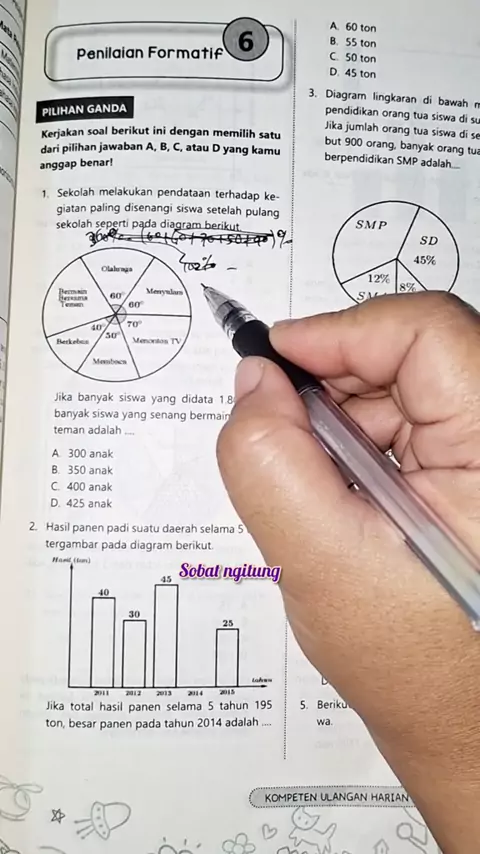 Penilaian Formatif 6
PILIHAN GANDA
Kerjakan soal berikut ini dengan memilih satu
dari pilihan jawaban A, B, C, atau D yang kamu
anggap benar!
1. Sekolah melakukan pendataan terhadap ke-
giatan paling disenangi siswa setelah pulang
sekolah seperti pada diagram berikut.
Olahraga
Bermain
Bersama
Teman
Menyulam
60°
60°
40°
70°
50°
Berkebun
Menonton TV
Membaca
Jika banyak siswa yang didata 1.8
banyak siswa yang senang bermain
teman adalah ....
A. 300 anak
B. 350 anak
C. 400 anak
D. 425 anak
2. Hasil panen padi suatu daerah selama 5
tergambar pada diagram berikut.
Hasil (ton)
Sobat ngitung
45
40
30
25
tahun
2011 2012 2013 2014 2015
Jika total hasil panen selama 5 tahun 195
ton, besar panen pada tahun 2014 adalah ....
A. 60 ton
B. 55 ton
C. 50 ton
D. 45 ton
3. Diagram lingkaran di bawah
pendidikan orang tua siswa di
Jika jumlah orang tua siswa di
but 900 orang, banyak orang
berpendidikan SMP adalah....
SMP
SD
45%
12%
8%
5.
wa.
KOMPETEN ULANGAN HARIAN